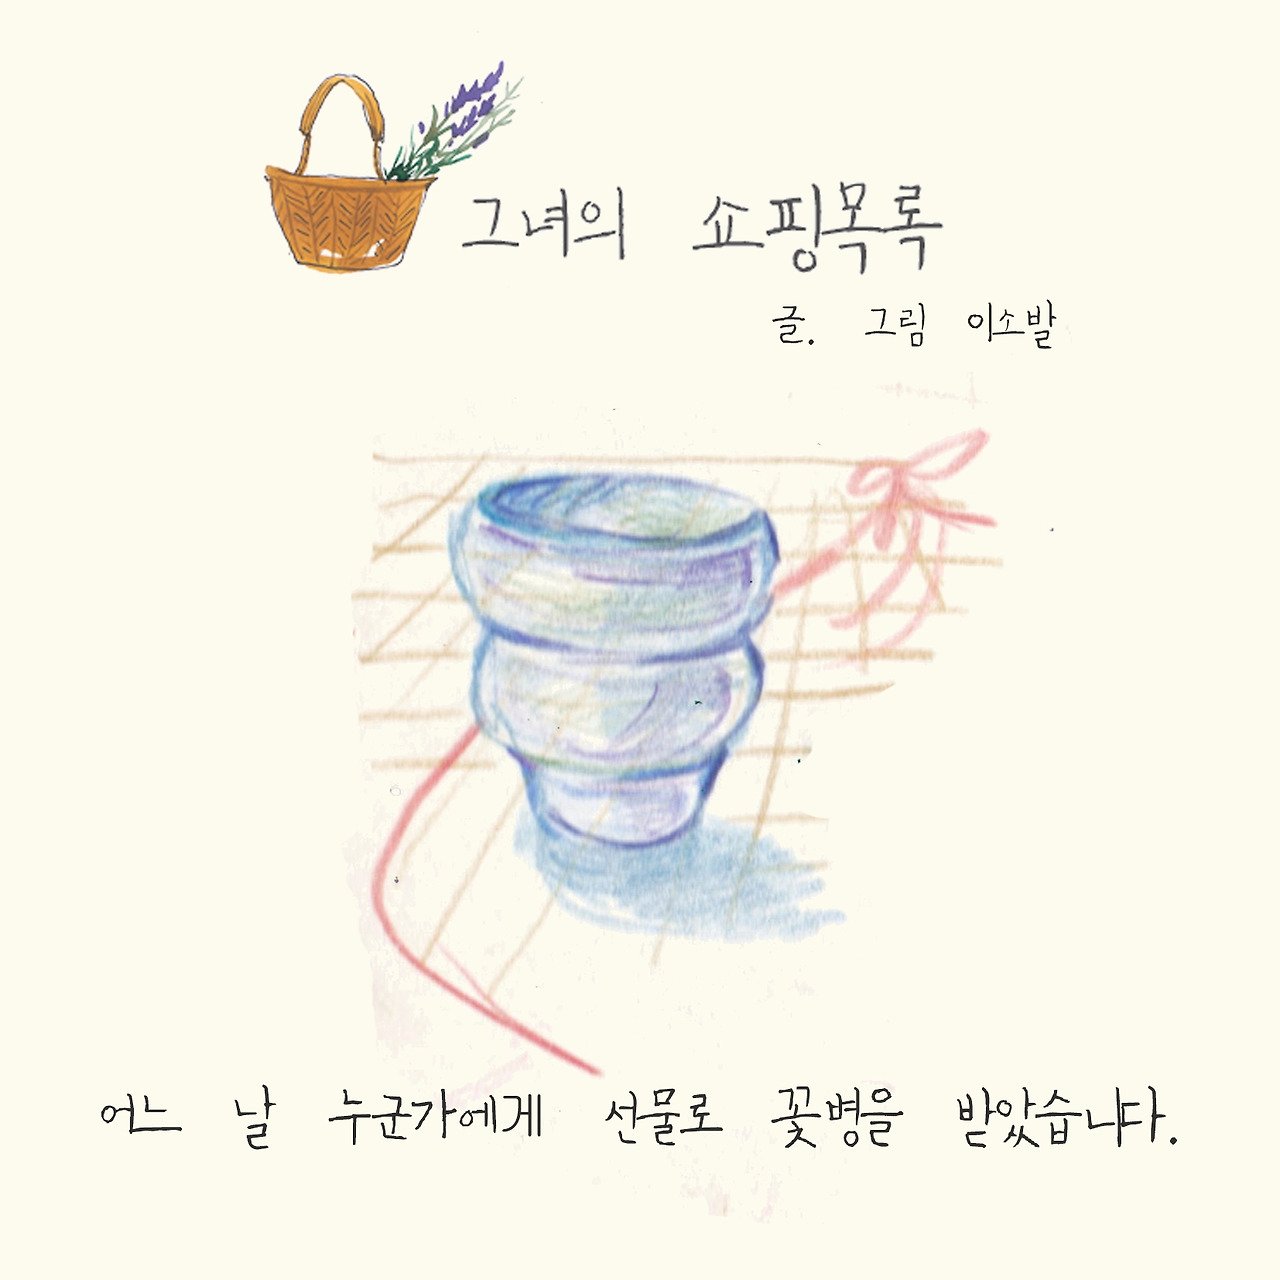 그녀의 쇼핑목록
글. 그림 이소발
어느 날 누군가에게 선물로 꽃병을 받았습니다.